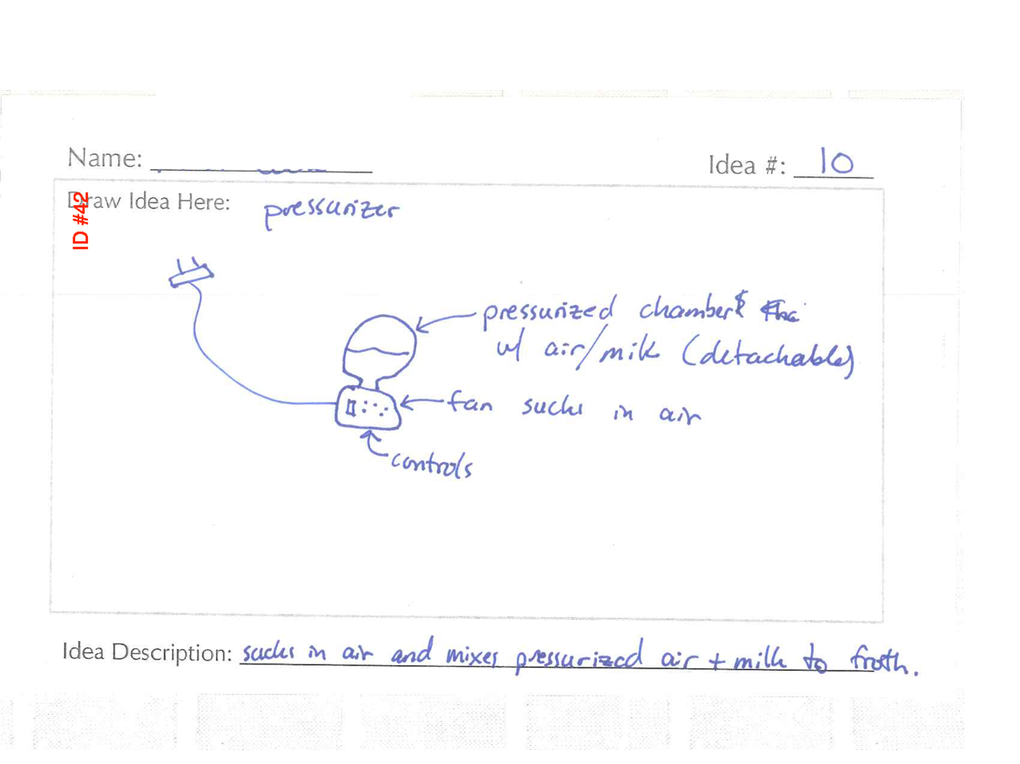 Name:
Idea #: 10
ID #42
Draw Idea Here: pressurizer
pressurized chamber
w/ air/milk (detachable)
fan sucks in air
controls
Idea Description: sucks in air and mixes pressurized air + milk to froth.